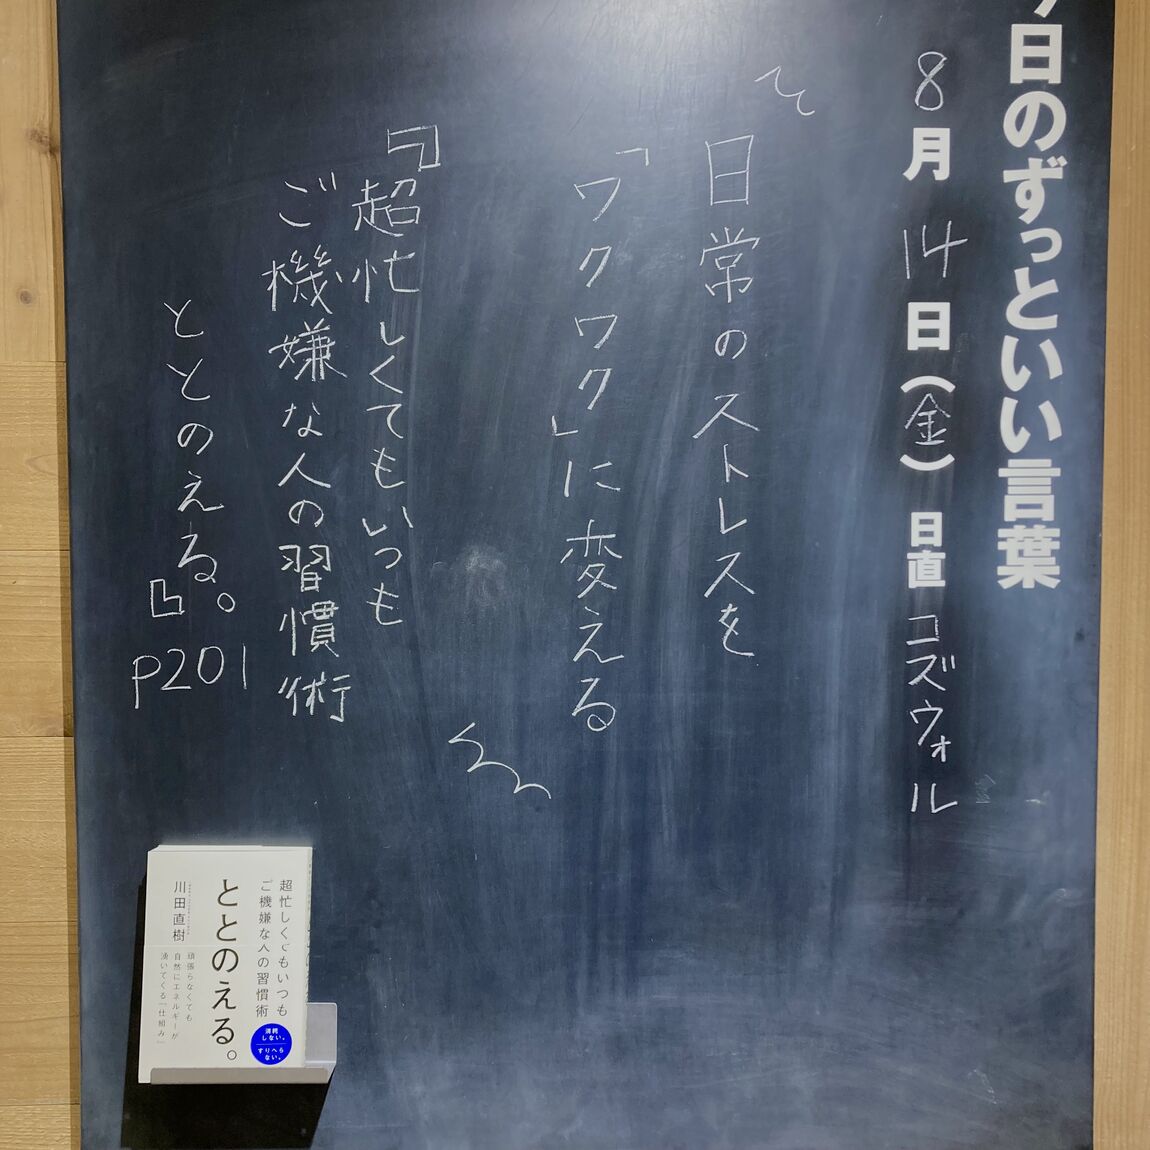 日のずっといい言葉
8月14日(金) 日直 コズウォル
日常のストレスを
「ワクワク」に変える
『超忙しくてもいつも
ご機嫌な人の習慣術
ととのえる。』
P201
超忙しくてもいつも
ご機嫌な人の習慣術
ととのえる。
川田直樹
頑張らなくても
自然にエネルギーが
湧いてくる「仕組み」
消耗
しない。
すりへら
ない。